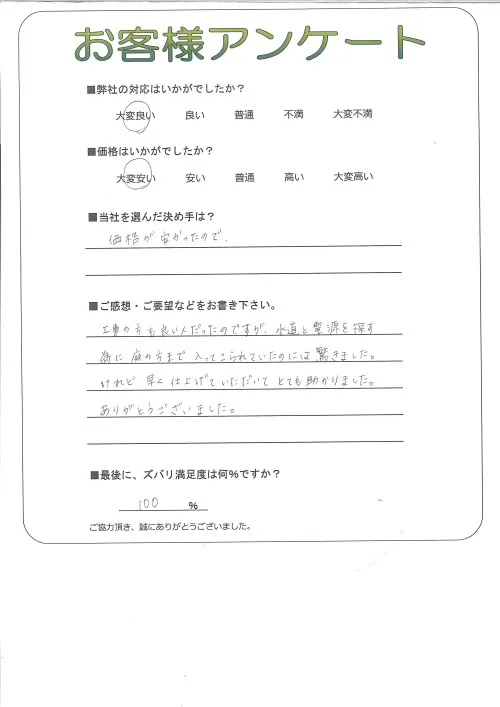 お客様アンケート
■弊社の対応はいかがでしたか？
大変良い 良い 普通 不満 大変不満
■価格はいかがでしたか？
大変安い 安い 普通 高い 大変高い
■当社を選んだ決め手は？
価格が安かったので、
■ご感想・ご要望などをお書き下さい。
工事の方も良い人だったのですが、水道と電源を探す
為に庭の方まで入ってこられていたのには驚きました。
けれど早く仕上げていただいてとても助かりました。
ありがとうございました。
■最後に、ズバリ満足度は何％ですか？
100 ％
ご協力頂き、誠にありがとうございました。